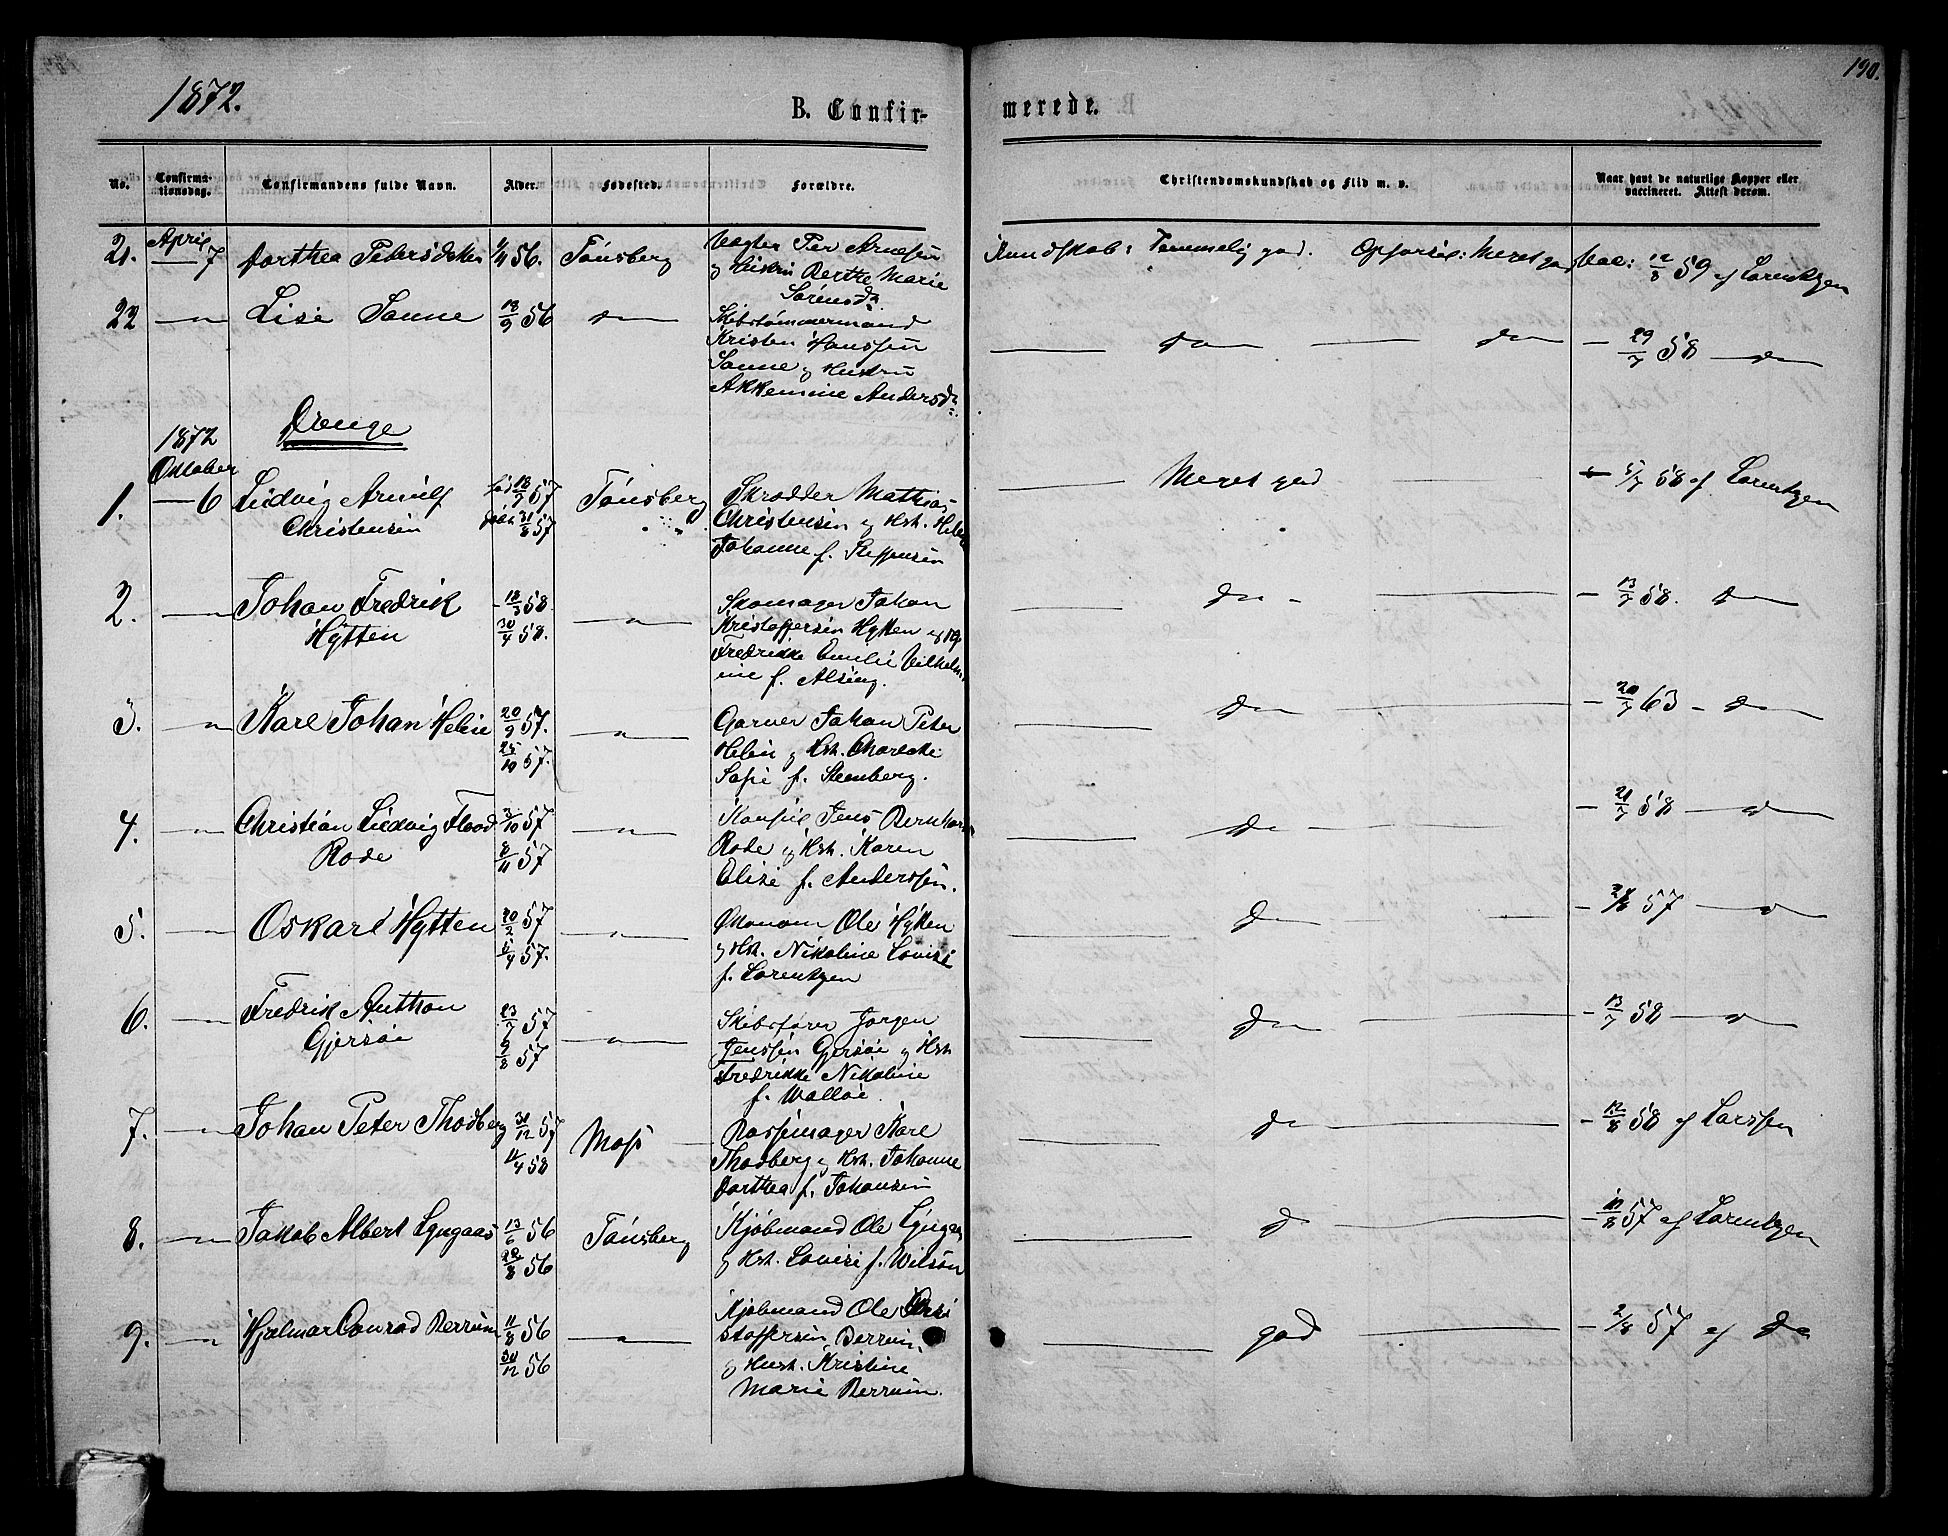 1872.
B. Confir-
merede.
190.
No.
Confirma-
tionsdag.
Confirmandens fulde Navn.
Alder.
Fødested.
Forældre.
Christendomskundskab og Flid m. v.
Naar havt de naturlige Kopper eller
vaccineret. Attest derom.
21. April 7 Dorthea Pedersdatter 56. Tønsberg
Per Arnesen
og Hustru Berthe Marie
Sørensd.
Kundskab: Temmelig god. Opførsel: Meget god Vac: 12/8 59 af Lorentzen
22 — " — Lise Sanne 18/9 56 do
Skibstømmermand
Kristen Hanssen
Sanne og Hustru
Andersd.
do do — 29/7 58 — do
Drenge
1872
Oktober
1. — 6 Ludvig Arnulf
Christensen
fød 18/7 57
døbt 31/8 57
Tønsberg
Skrædder Mathias
Christensen og Hst. Helene
Johanne f. Steffensen
Meget god
5/7 58 af Lorentzen
2. — " — Johan Fredrik
Hytten
18/3 58.
30/4 58.
— " —
Skomager Johan
Kristoffersen Hytten og
Fredrikke Emilie Vilhelm
ine f. Alsing.
do — 13/7 58. do
3. — " — Karl Johan Helin
20/9 57.
25/10 57.
— " —
Garver Johan Peter
Helin og Hst.
Sofie f. Steenberg.
do — 20/7 63 — do
4. — " — Christian Ludvig Flood
Rode
2/10 57
8/11 57
— " —
Konsul Jens Bernhard
Rode og Hst. Karen
Elise f. Anderssen.
do — 21/7 58 — do
5. — " — Oskar Hytten
20/2 57
5/4 57.
— " —
Økonom Ole Hytten
og Hst. Nikoline Lovise
f. Lorentzen
do — 57 — do
6. — " — Fredrik Anthon
Gjersøe
23/7 57
9/8 57
— " —
Skibsfører Jørgen
Jenssen Gjersøe og Hst.
Fredrikke Nikoline
f. Walløe.
do — 13/7 58 — do
7. — " — Johan Peter Thodberg
31/12 57
11/4 58
Moss
Karl
Thodberg og Hst. Johanne
Dorthea f. Johansen
do — 12/8 58 af Larssen
8. — " — Jakob Albert Lyngaas
13/6 56
22/8 56
Tønsberg
Kjøbmand Ole Lyngaas
og Hst. Lovise f. Wilson
do — 57 af Lorentzen
9. — " — Hjalmar Conrad Berrum
11/8 56
30/12 56
— " —
Kjøbmand Ole Kri
stoffersen Berrum,
og Hust. Kristine
Marie Berrum.
god — 2/8 57 af do